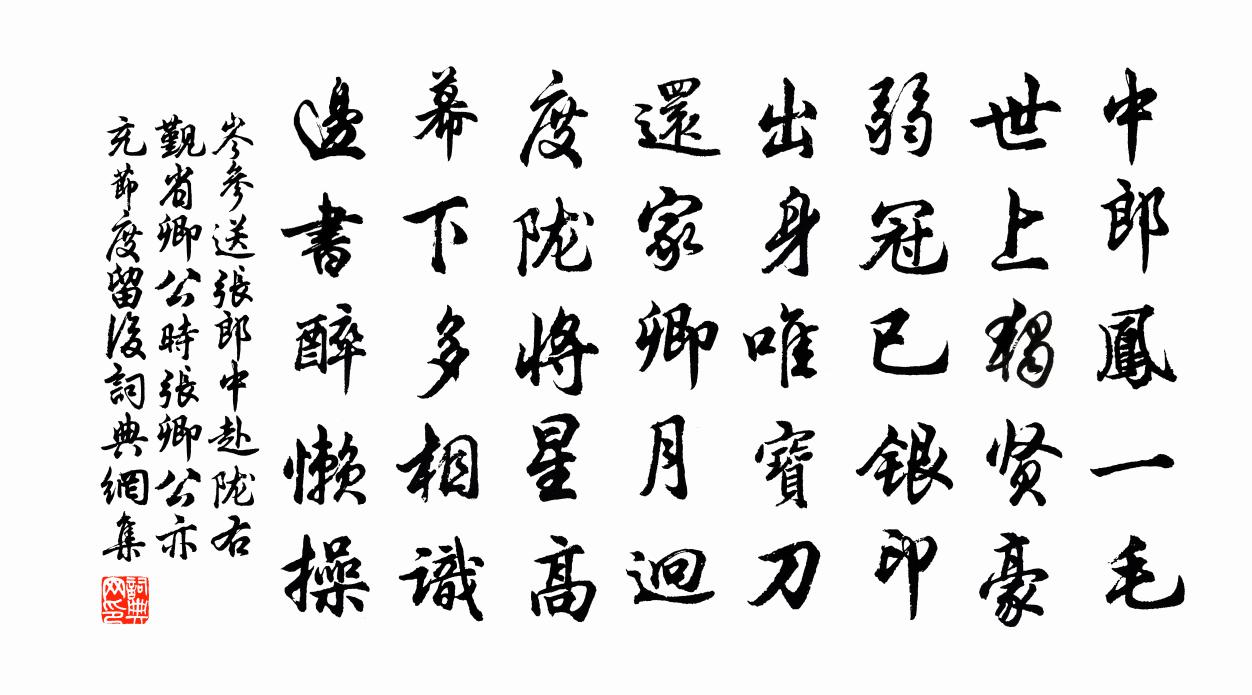 中郎鳳一毛
世上独贤豪
弱冠已銀印
出身唯寶刀
還家卿月迥
度陇將星高
幕下多相識
邊書醉懒操
岑參送張郎中赴陇右
觐省卿公時張卿公亦
充節度留後詞典網集
詞典网印